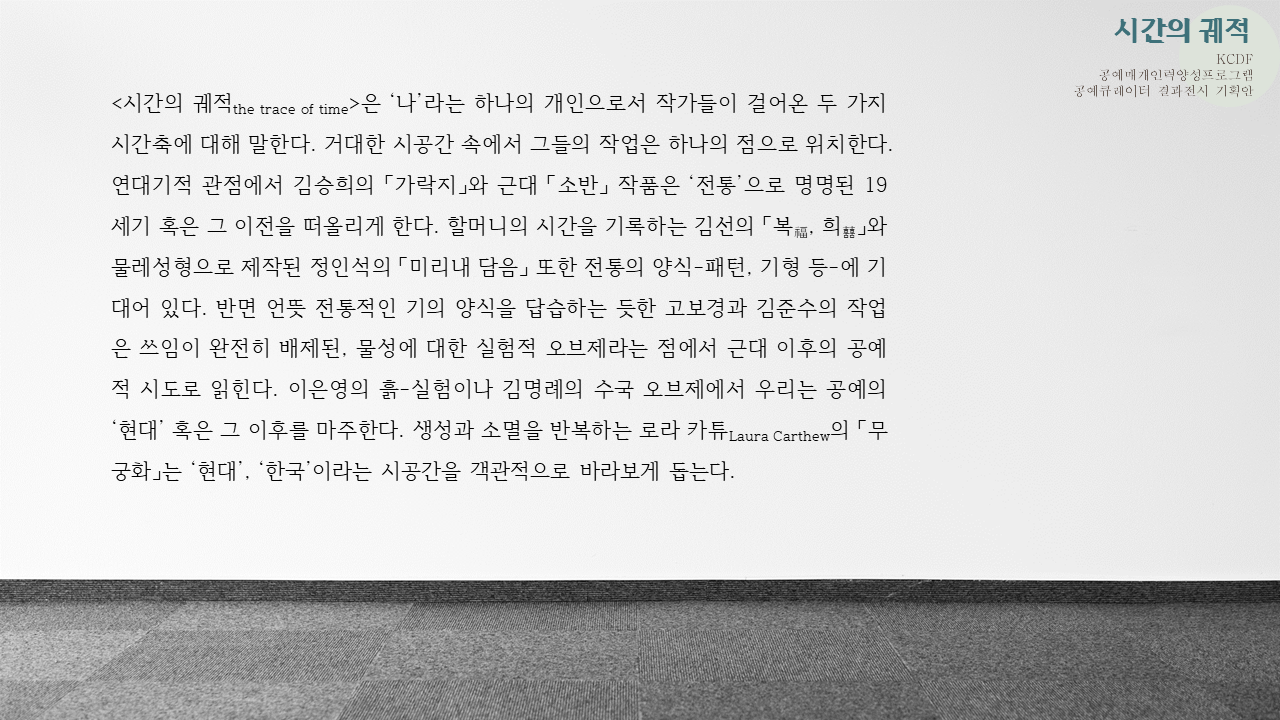 시간의 궤적
KCDF
공예매개인력양성프로그램
공예큐레이터 결과전시 기획안
<시간의 궤적the trace of time>은 ‘나’라는 하나의 개인으로서 작가들이 걸어온 두 가지
시간축에 대해 말한다. 거대한 시공간 속에서 그들의 작업은 하나의 점으로 위치한다.
연대기적 관점에서 김승희의 「가락지」와 근대 「소반」 작품은 ‘전통’으로 명명된 19
세기 혹은 그 이전을 떠올리게 한다. 할머니의 시간을 기록하는 김선의 「복福, 희囍」와
물레성형으로 제작된 정인석의 「미리내 담음」 또한 전통의 양식-패턴, 기형 등-에 기
대어 있다. 반면 언뜻 전통적인 기의 양식을 답습하는 듯한 고보경과 김준수의 작업
은 쓰임이 완전히 배제된, 물성에 대한 실험적 오브제라는 점에서 근대 이후의 공예
적 시도로 읽힌다. 이은영의 흙-실험이나 김명례의 수국 오브제에서 우리는 공예의
‘현대’ 혹은 그 이후를 마주한다. 생성과 소멸을 반복하는 로라 카튜Laura Carthew의 「무
궁화」는 ‘현대’, ‘한국’이라는 시공간을 객관적으로 바라보게 돕는다.